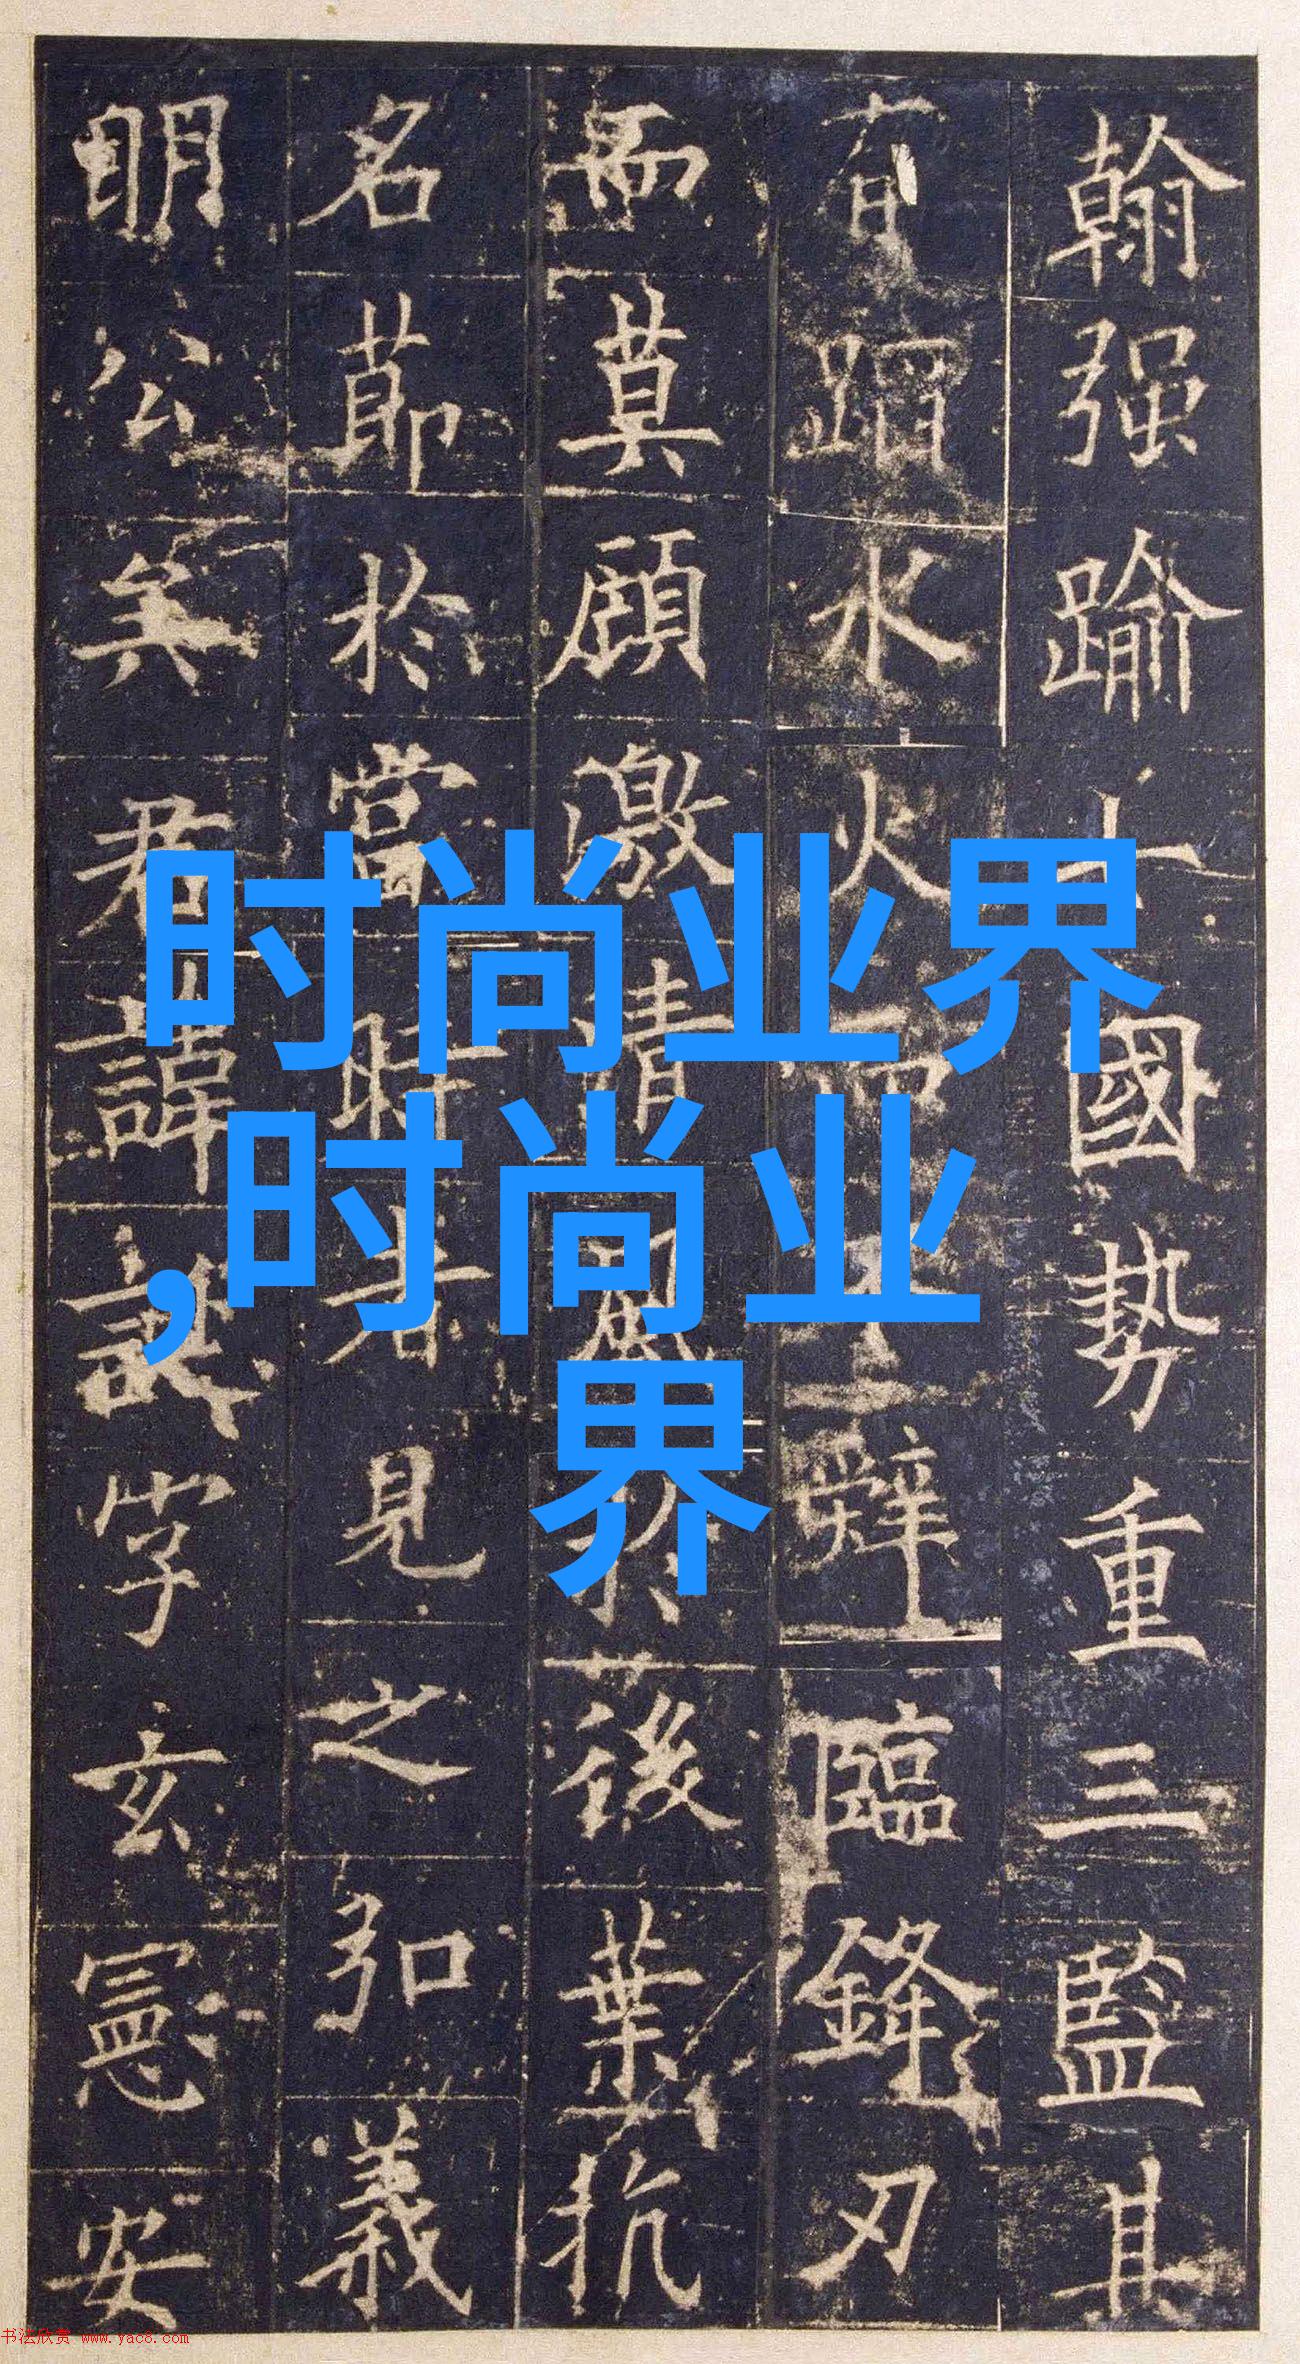 翰强踰七國勢重三監其
有蹈水火而不辭臨鋒刃
而莫顧激清風於後葉抗
名節於當時者見之弘義
明公矣君諱誕字玄憲安
时尚业界
,时尚业
界
书法欣赏 www.yac8.com